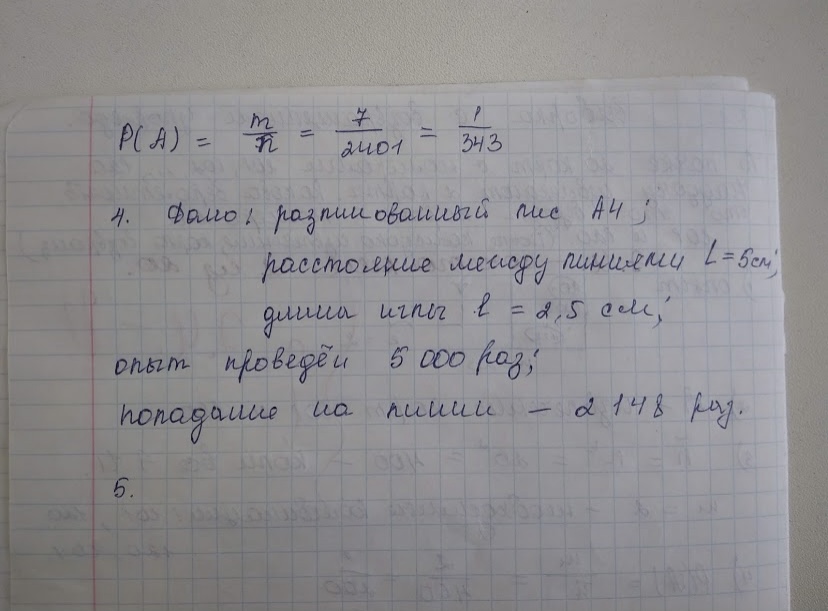 P(A) = m/n = 7/2401 = 1/343
4. Дано: разлинованный лис А4;
расстояние между линиями L = 5см;
длина иглы l = 2,5 см;
опыт проведён 5 000 раз;
попадание на линии – 2 148 раз.
5.